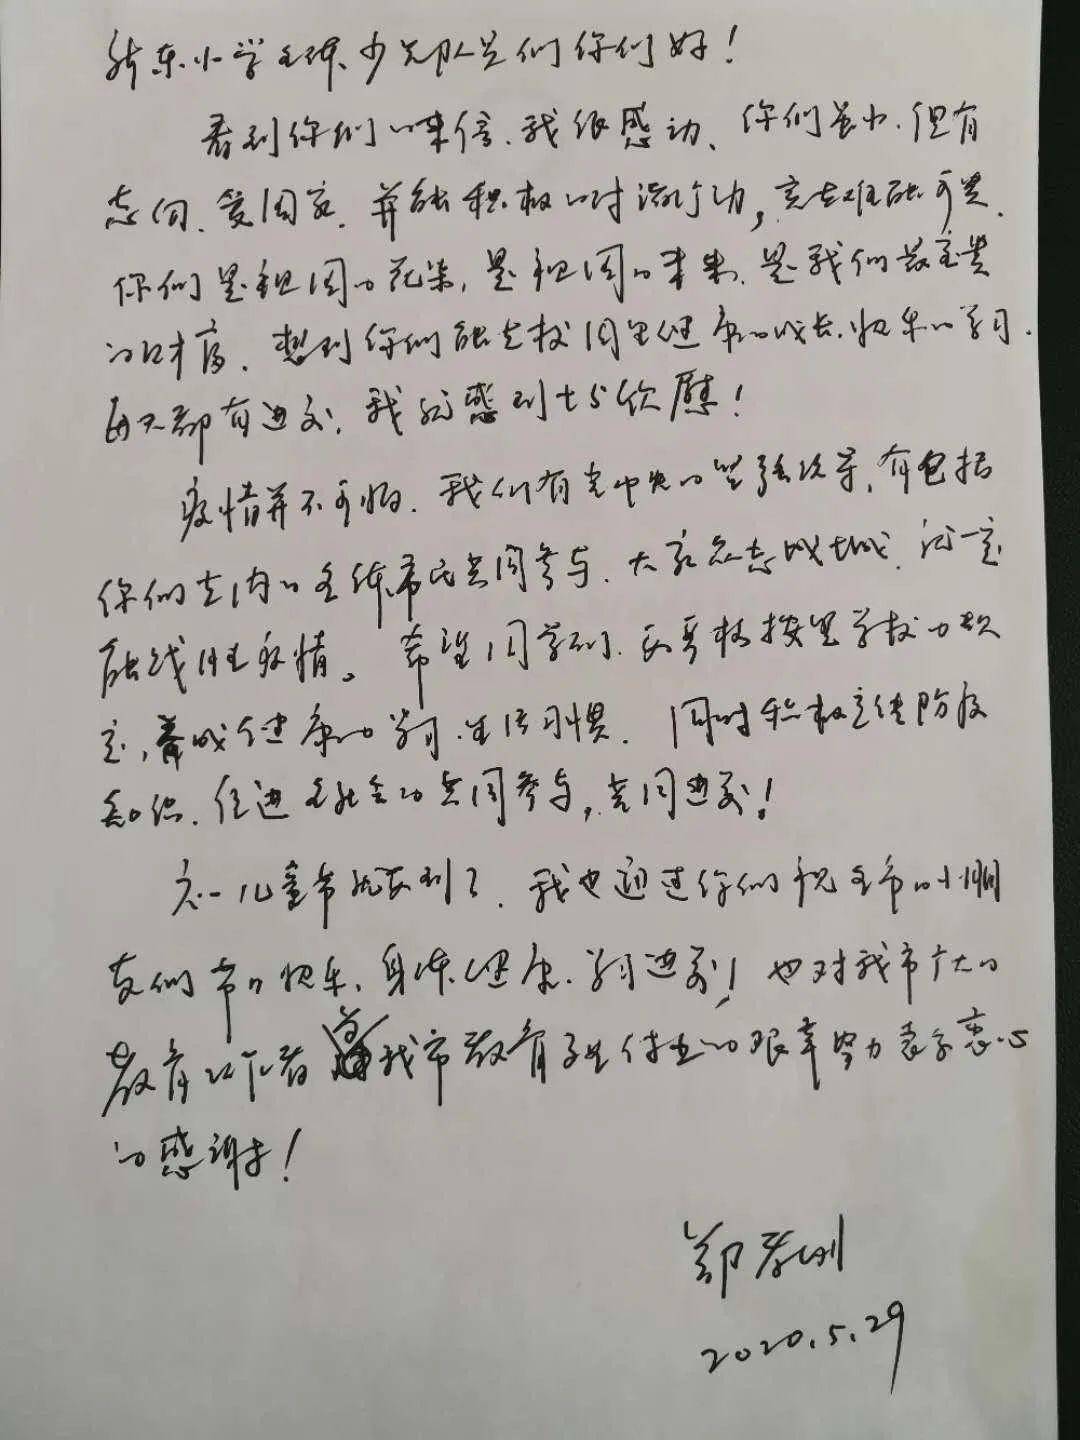 新东小学全体少先队员们你们好！
看到你们的来信，我很感动、你们虽小，但有
志向、爱国家，并能积极的付诸行动，实在难能可贵，
你们是祖国的花朵，是祖国的未来，是我们最宝贵
的财富，想到你们能在校园里健康的成长、快乐的学习，
每天都有进步，我就感到十分欣慰！
疫情并不可怕，我们有党中央的坚强领导，有包括
你们在内的全体市民共同参与，大家众志成城，就一定
能战胜疫情。希望同学们，要严格按照学校的规
定，养成健康的学习、生活习惯，同时积极宣传防疫
知识，促进全社会的共同参与，共同进步！
六一儿童节就要到了，我也通过你们祝全市的小朋
友们节日快乐、身体健康、学习进步！也对我市广大的
教育工作者为我市教育事业付出的艰辛努力表示衷心
的感谢！
郑
2020.5.29